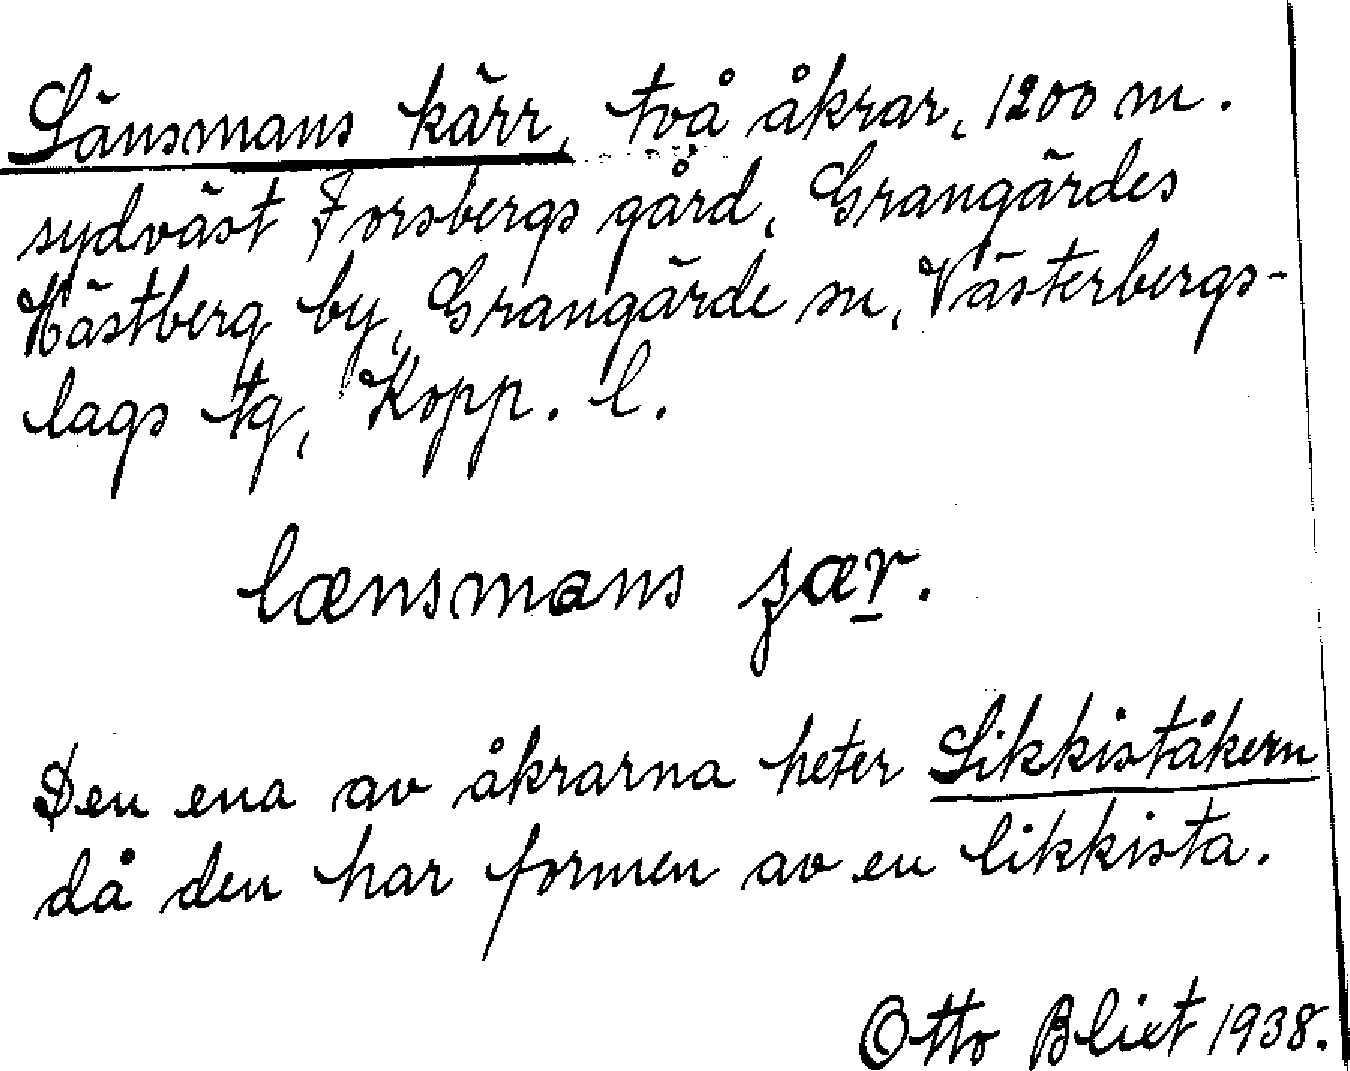 Länsmans kärr, två åkrar, 1200 m.
sydväst Forsbergs gård, Grangärdes
Hästberg by, Grangärde sn, Västerbergs-
lags tg, Kopp. l.
lænsmans ʂær.
Den ena av åkrarna heter Likkiståkern
då den har formen av en likkista.
Otto Blixt 1938.